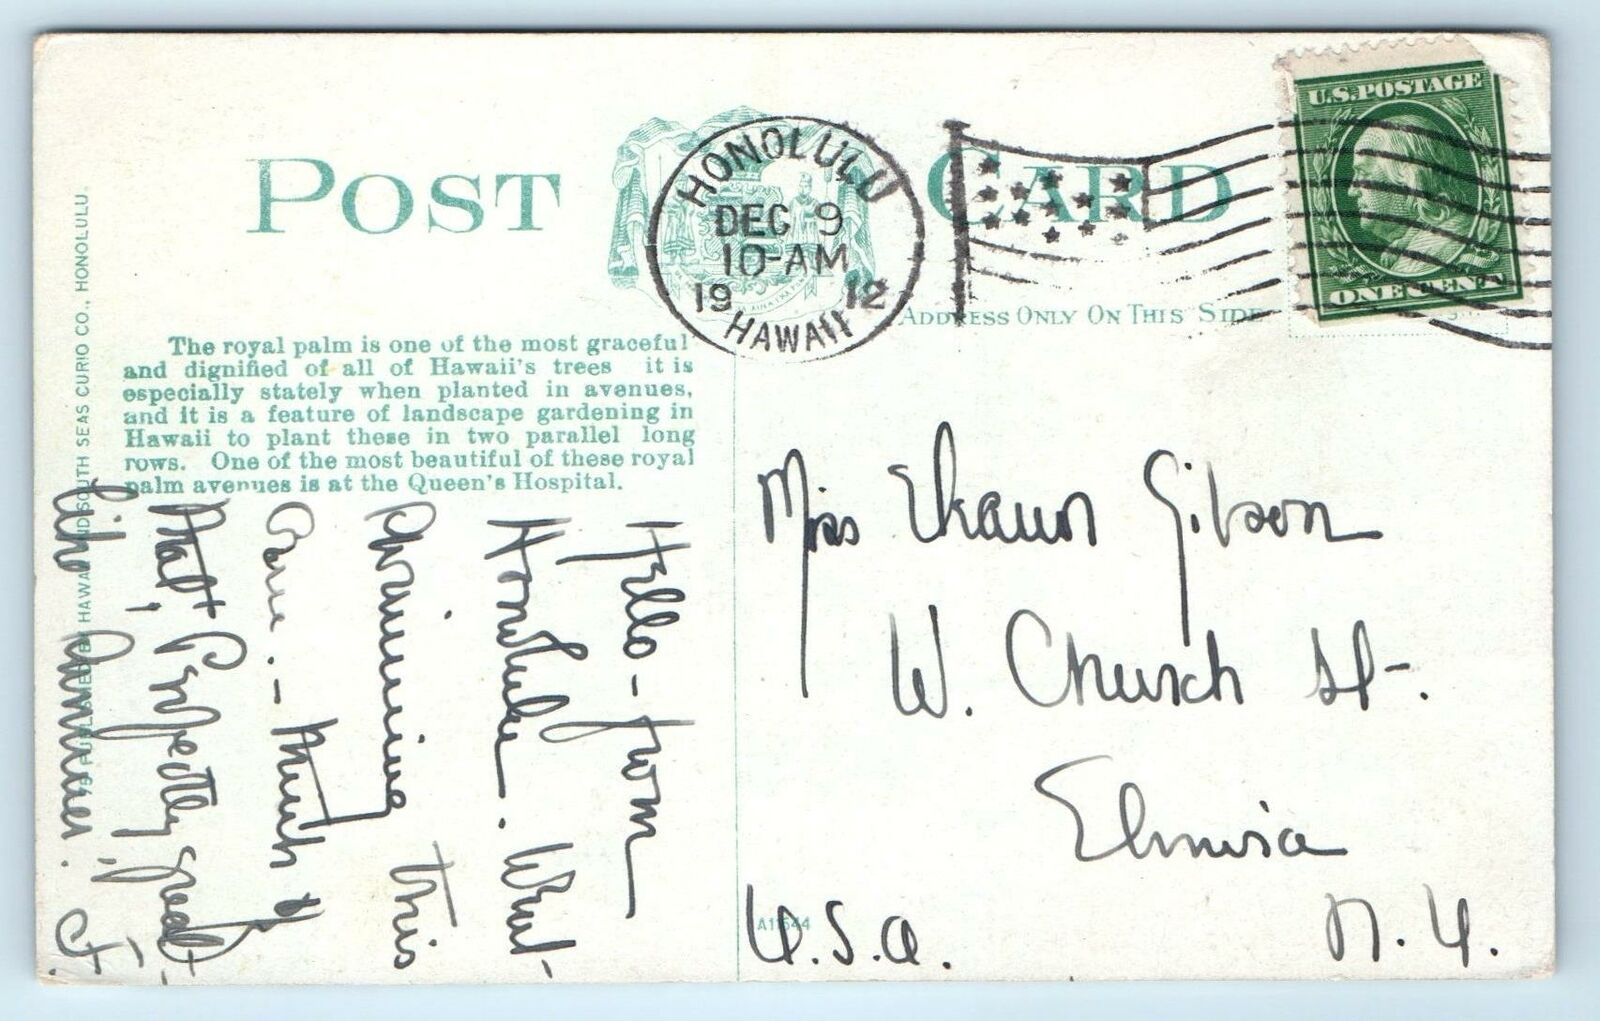 POST CARD
HONOLULU
DEC 9
10-AM
1912
HAWAII
U.S. POSTAGE
ONE CENT
ADDRESS ONLY ON THIS SIDE
The royal palm is one of the most graceful
and dignified of all of Hawaii's trees it is
especially stately when planted in avenues,
and it is a feature of landscape gardening in
Hawaii to plant these in two parallel long
rows. One of the most beautiful of these royal
palm avenues is at the Queen's Hospital.
PUBLISHED BY HAWAII AND SOUTH SEAS CURIO CO., HONOLULU.
Hello - from
Honolulu. Went
swimming this
a.m. - Think of
that, Perfectly great
like summer. J.
Miss Gibson
W. Church St.
Elmira
N.Y.
U.S.A.
A11544